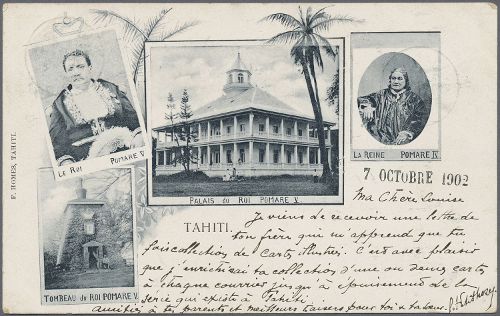 F. HOMES, TAHITI.
LE ROI POMARE V
PALAIS DU ROI POMARE V.
LA REINE POMARE IV
7 OCTOBRE 1902
TOMBEAU DU ROI POMARE V
TAHITI.
Ma Chère Louise
Je viens de recevoir une lettre de
ton frère qui m'apprend que tu
fais collection de Cartes Illustrées. C'est avec plaisir
que j'enrichirai ta collection d'une ou deux cartes
à chaque courrier jusqu'à épuisement de la
série qui existe à Tahiti.
Amitiés à tes parents et meilleurs baisers pour toi &